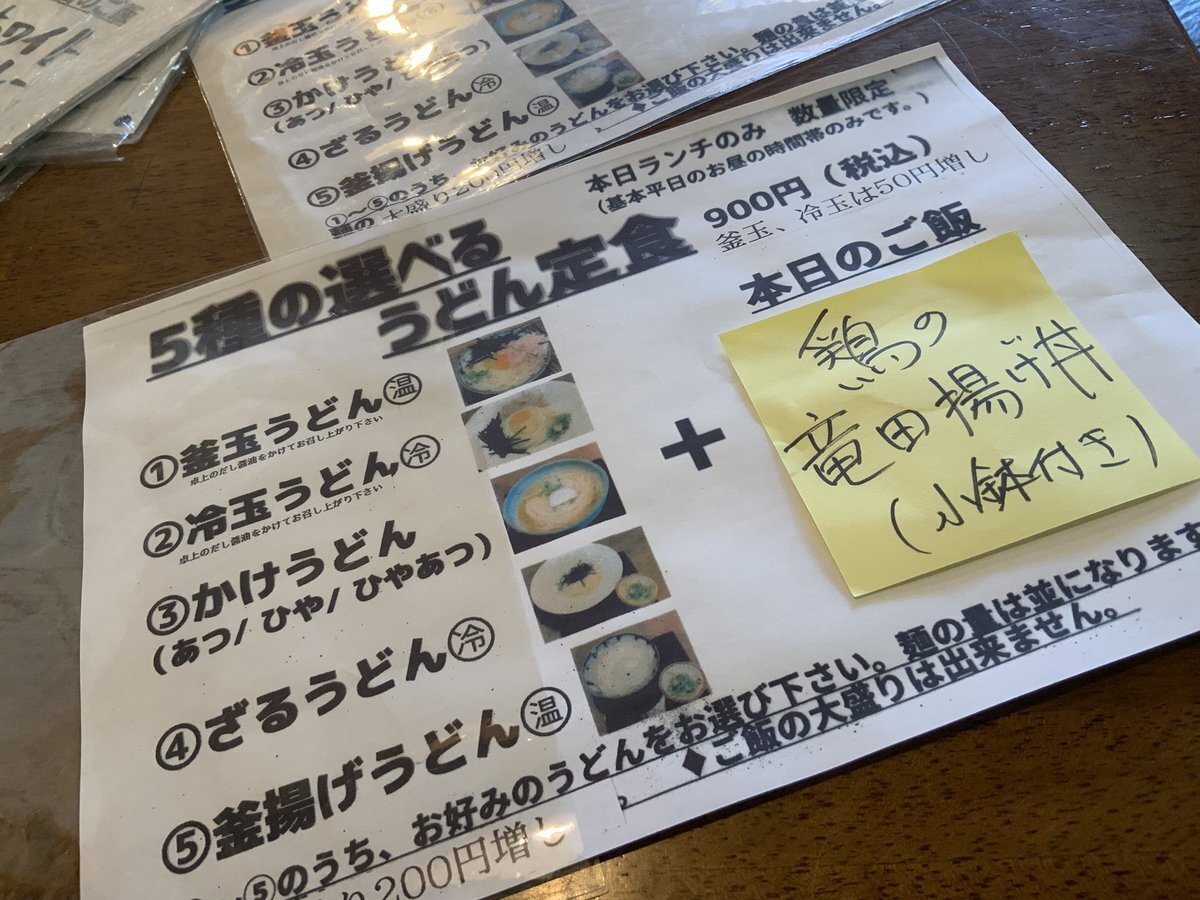 ①釜玉うどん
卓上のだし醤油をかけてお召し上がり下さい
②冷玉うどん㊀冷
③かけうどん
(あつ/ ひや/ ひやあつ)
④ざるうどん 冷
⑤釜揚げうどん 温
①~⑤のうち、お好みのうどんをお選び下さい。麺の量は並
麺の 大盛り200円増し
◆ご飯の大盛りは出来ません。
本日ランチのみ 数量限定
(基本平日のお昼の時間帯のみです。)
5種の選べる
うどん定食
900円(税込)
釜玉、冷玉は50円増し
本日のご飯
①釜玉うどん 温
卓上のだし醤油をかけてお召し上がり下さい
②冷玉うどん 冷
卓上のだし醤油をかけてお召し上がり下さい
③かけうどん
(あつ/ ひや/ ひやあつ)
④ざるうどん 冷
⑤釜揚げうどん 温
+
鶏の
竜田揚げ丼
(小鉢付き)
⑤のうち、お好みのうどんをお選び下さい。麺の量は並になります
り200円増し
◆ご飯の大盛りは出来ません。